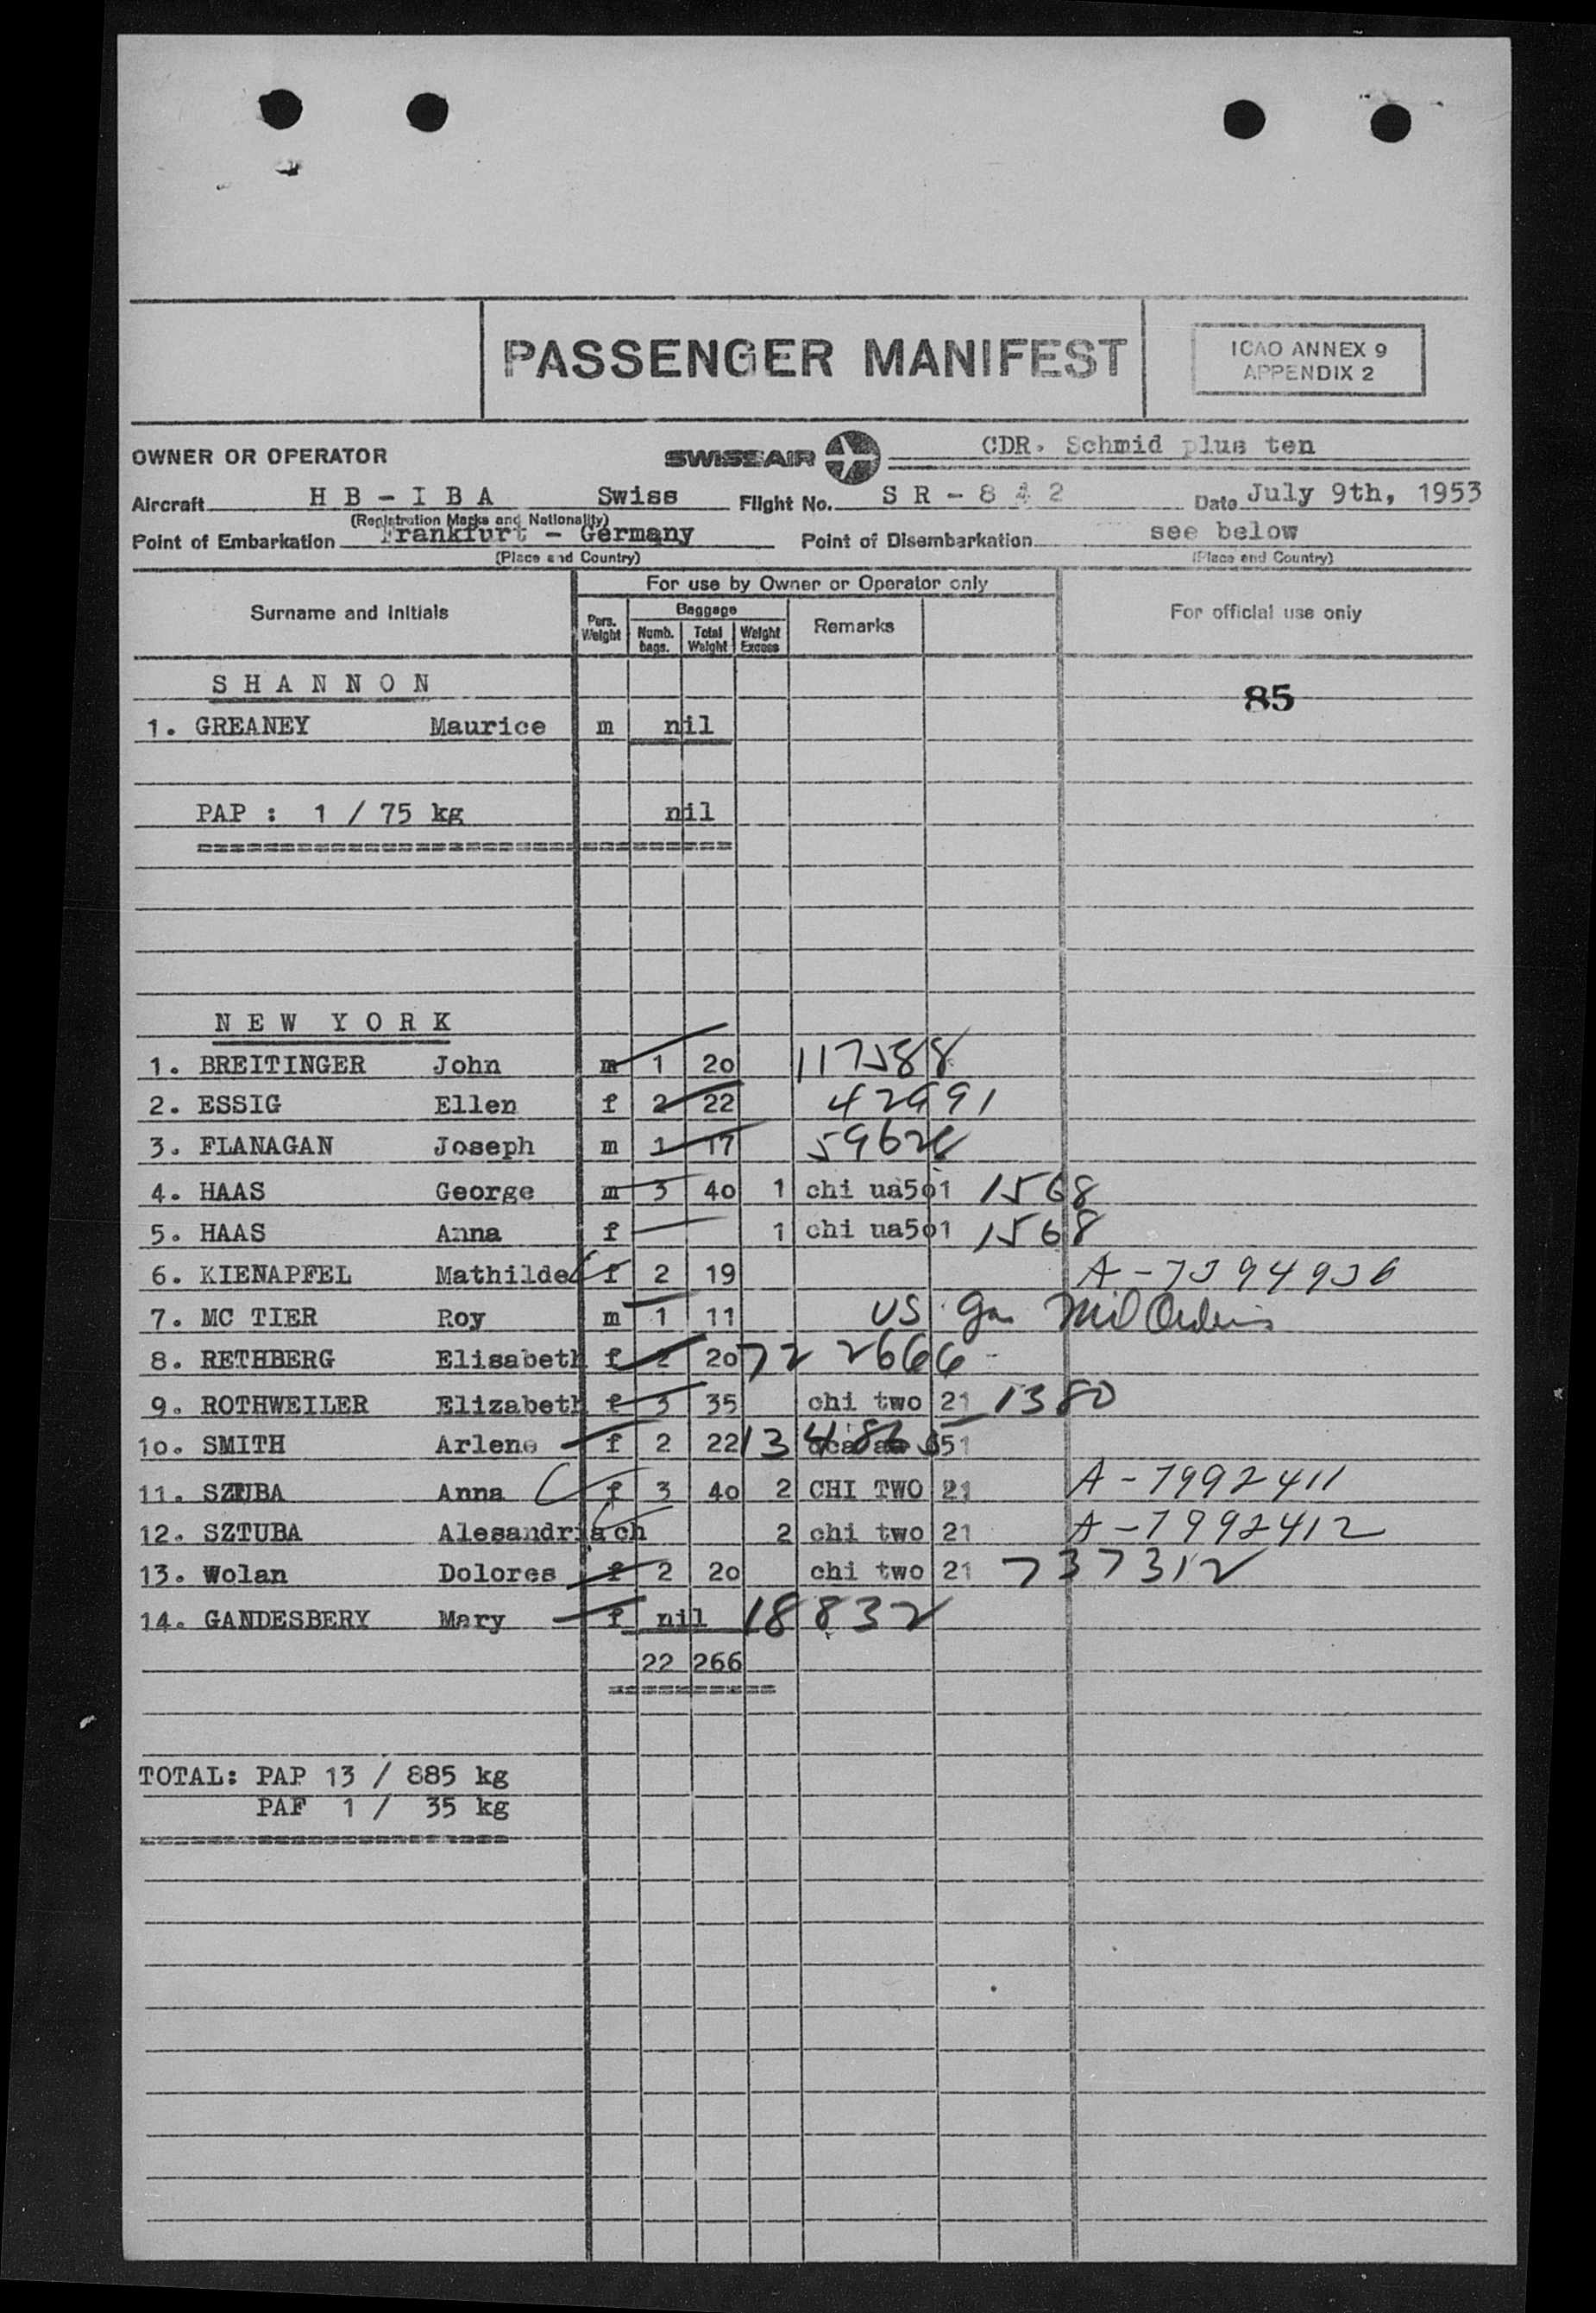 PASSENGER MANIFEST
ICAO ANNEX 9
APPENDIX 2
OWNER OR OPERATOR SWISSAIR CDR. Schmid plus ten
Aircraft H B - I B A Swiss Flight No. S R - 8 4 2 Date July 9th, 1953
(Registration Marks and Nationality)
Point of Embarkation Frankfurt - Germany Point of Disembarkation see below
(Place and Country) (Place and Country)
For use by Owner or Operator only
Surname and Initials Pers. Weight Baggage Numb. bags. Total Weight Weight Excess Remarks For official use only
S H A N N O N 85
1. GREANEY Maurice m nil
PAP : 1 / 75 kg nil
N E W Y O R K
1. BREITINGER John m 1 20 117588
2. ESSIG Ellen f 2 22 42991
3. FLANAGAN Joseph m 1 17
4. HAAS George m 3 40 1 chi ua501 1568
5. HAAS Anna f 1 chi ua501 1568
6. KIENAPFEL Mathilde f 2 19 A-7394936
7. MC TIER Roy m 1 11 US Mil Orders
8. RETHBERG Elisabeth f 2 20 72 2666
9. ROTHWEILER Elizabeth f 3 35 chi two 21 1380
10. SMITH Arlene f 2 22 651
11. SZTUBA Anna f 3 40 2 CHI TWO 21 A-7992411
12. SZTUBA Alesandria ch 2 chi two 21 A-7992412
13. Wolan Dolores f 2 20 chi two 21 737312
14. GANDESBERY Mary f nil 18832
22 266
TOTAL: PAP 13 / 885 kg
PAF 1 / 35 kg